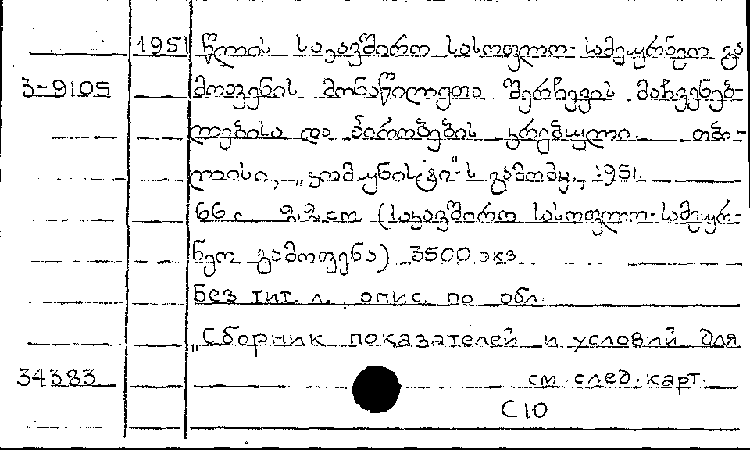 1951 წლის საკავშირო სასოფლო-სამეურნეო გა
3-9105 მოფენის მონაწილეთა შერჩევის მაჩვენებ-
ლებისა და პირობების კრებული. თბი-
ლისი, „კომუნისტი"-ს გამომც., 1951.
66 с. (საკავშირო სასოფლო-სამეურ-
ნეო გამოფენა) 3500 экз
Без тит. л., опис. по обл.
„Сборник показателей и условий для
34383 см. след. карт.
С10